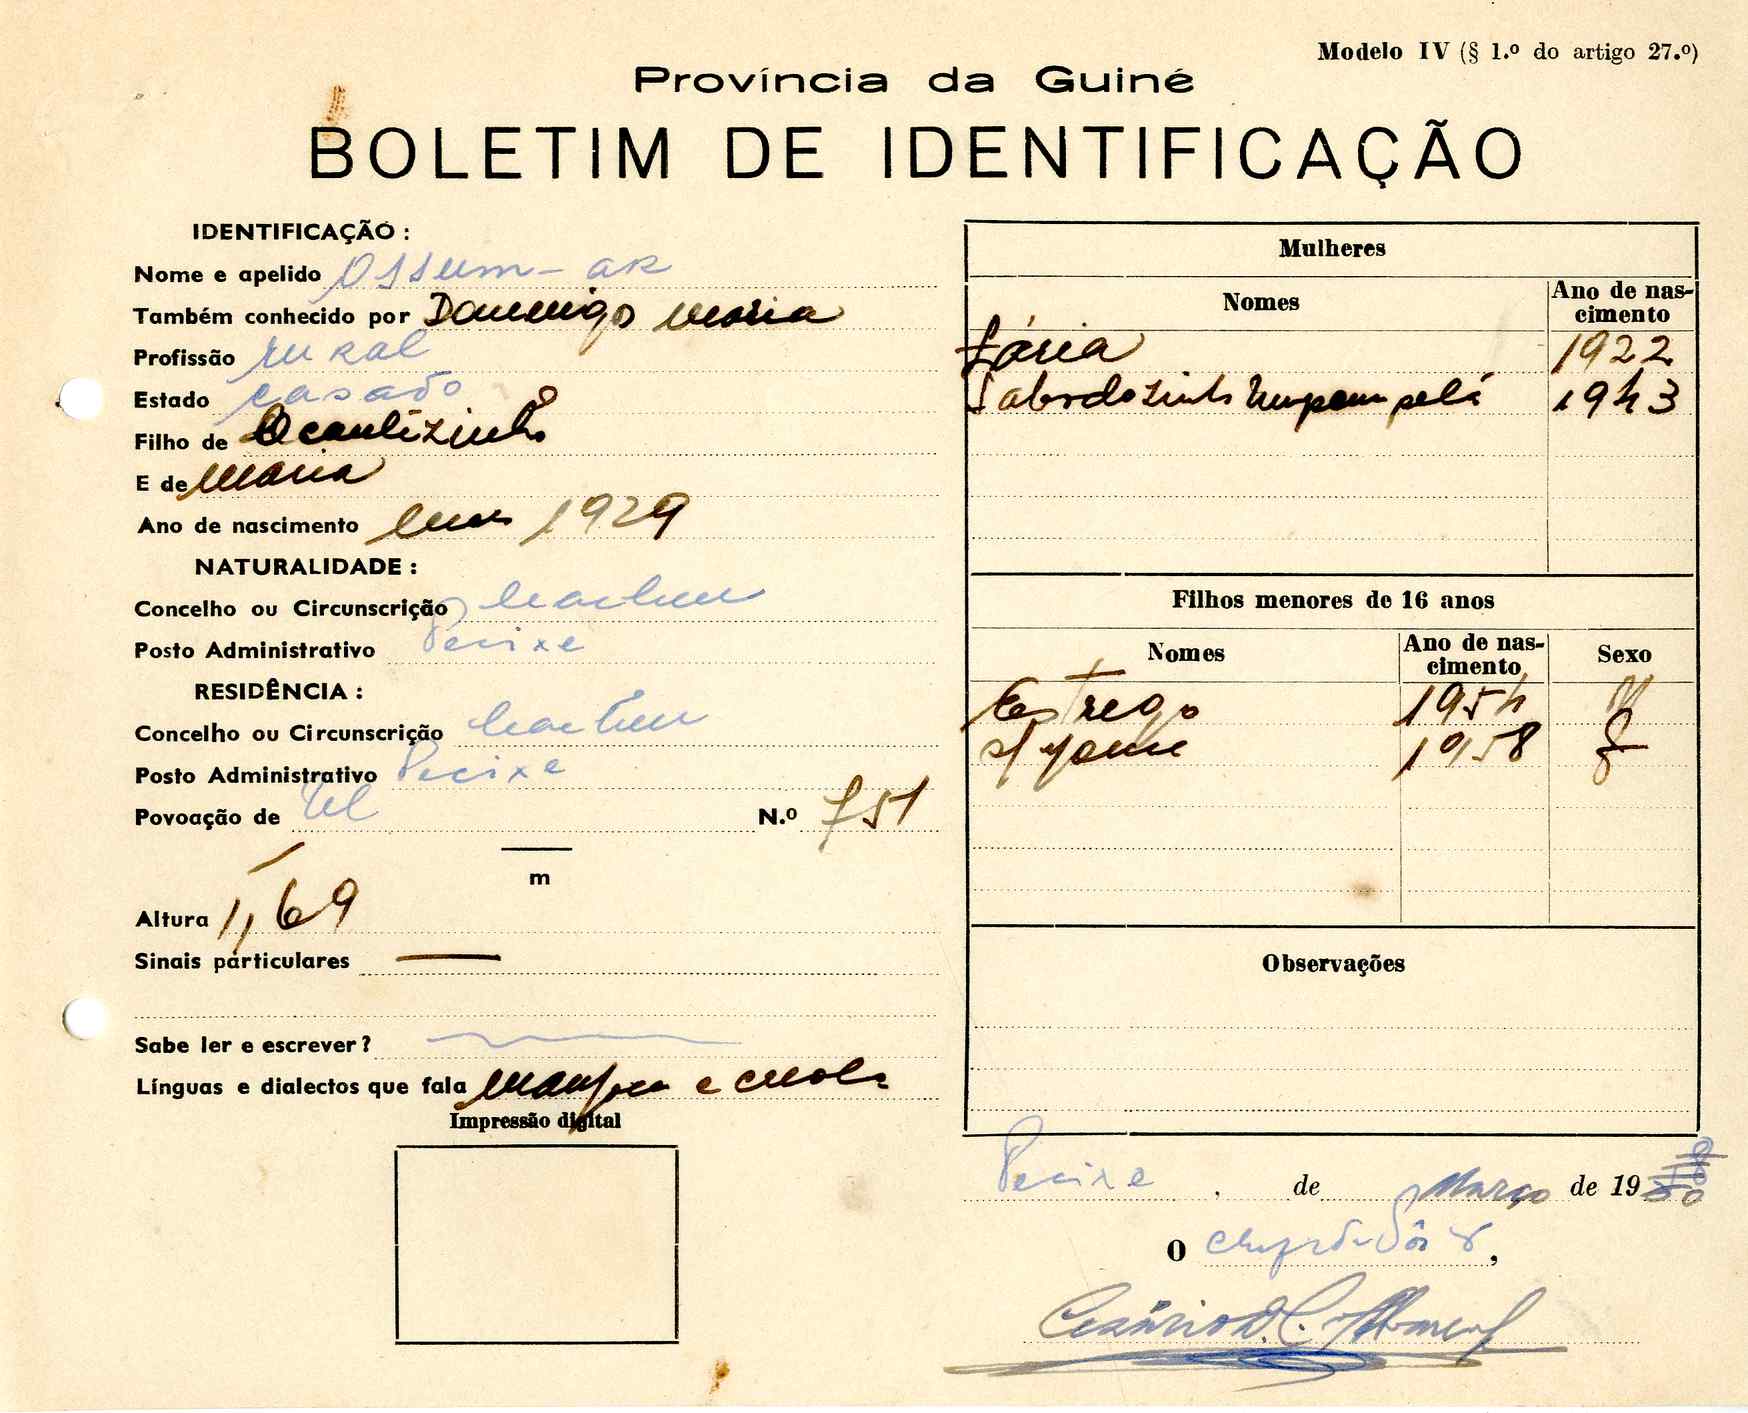 Modelo IV (§ 1.º do artigo 27.º)
Província da Guiné
BOLETIM DE IDENTIFICAÇÃO
IDENTIFICAÇÃO :
Nome e apelido Ossum-ar
Também conhecido por Domingo Maria
Profissão rural
Estado casado
Filho de Ocantizinho
E de Maria
Ano de nascimento 1929
NATURALIDADE :
Concelho ou Circunscrição
Posto Administrativo Pecixe
RESIDÊNCIA :
Concelho ou Circunscrição
Posto Administrativo Pecixe
Povoação de N.º 751
m
Altura 1,69
Sinais particulares —
Sabe ler e escrever?
Línguas e dialectos que fala e
Impressão digital
Mulheres
Nomes Ano de nas-
cimento
1922
1943
Filhos menores de 16 anos
Nomes Ano de nas-
cimento Sexo
Estrego 1954 M
s/ nome 1958 f
Observações
Pecixe , de Março de 19
O